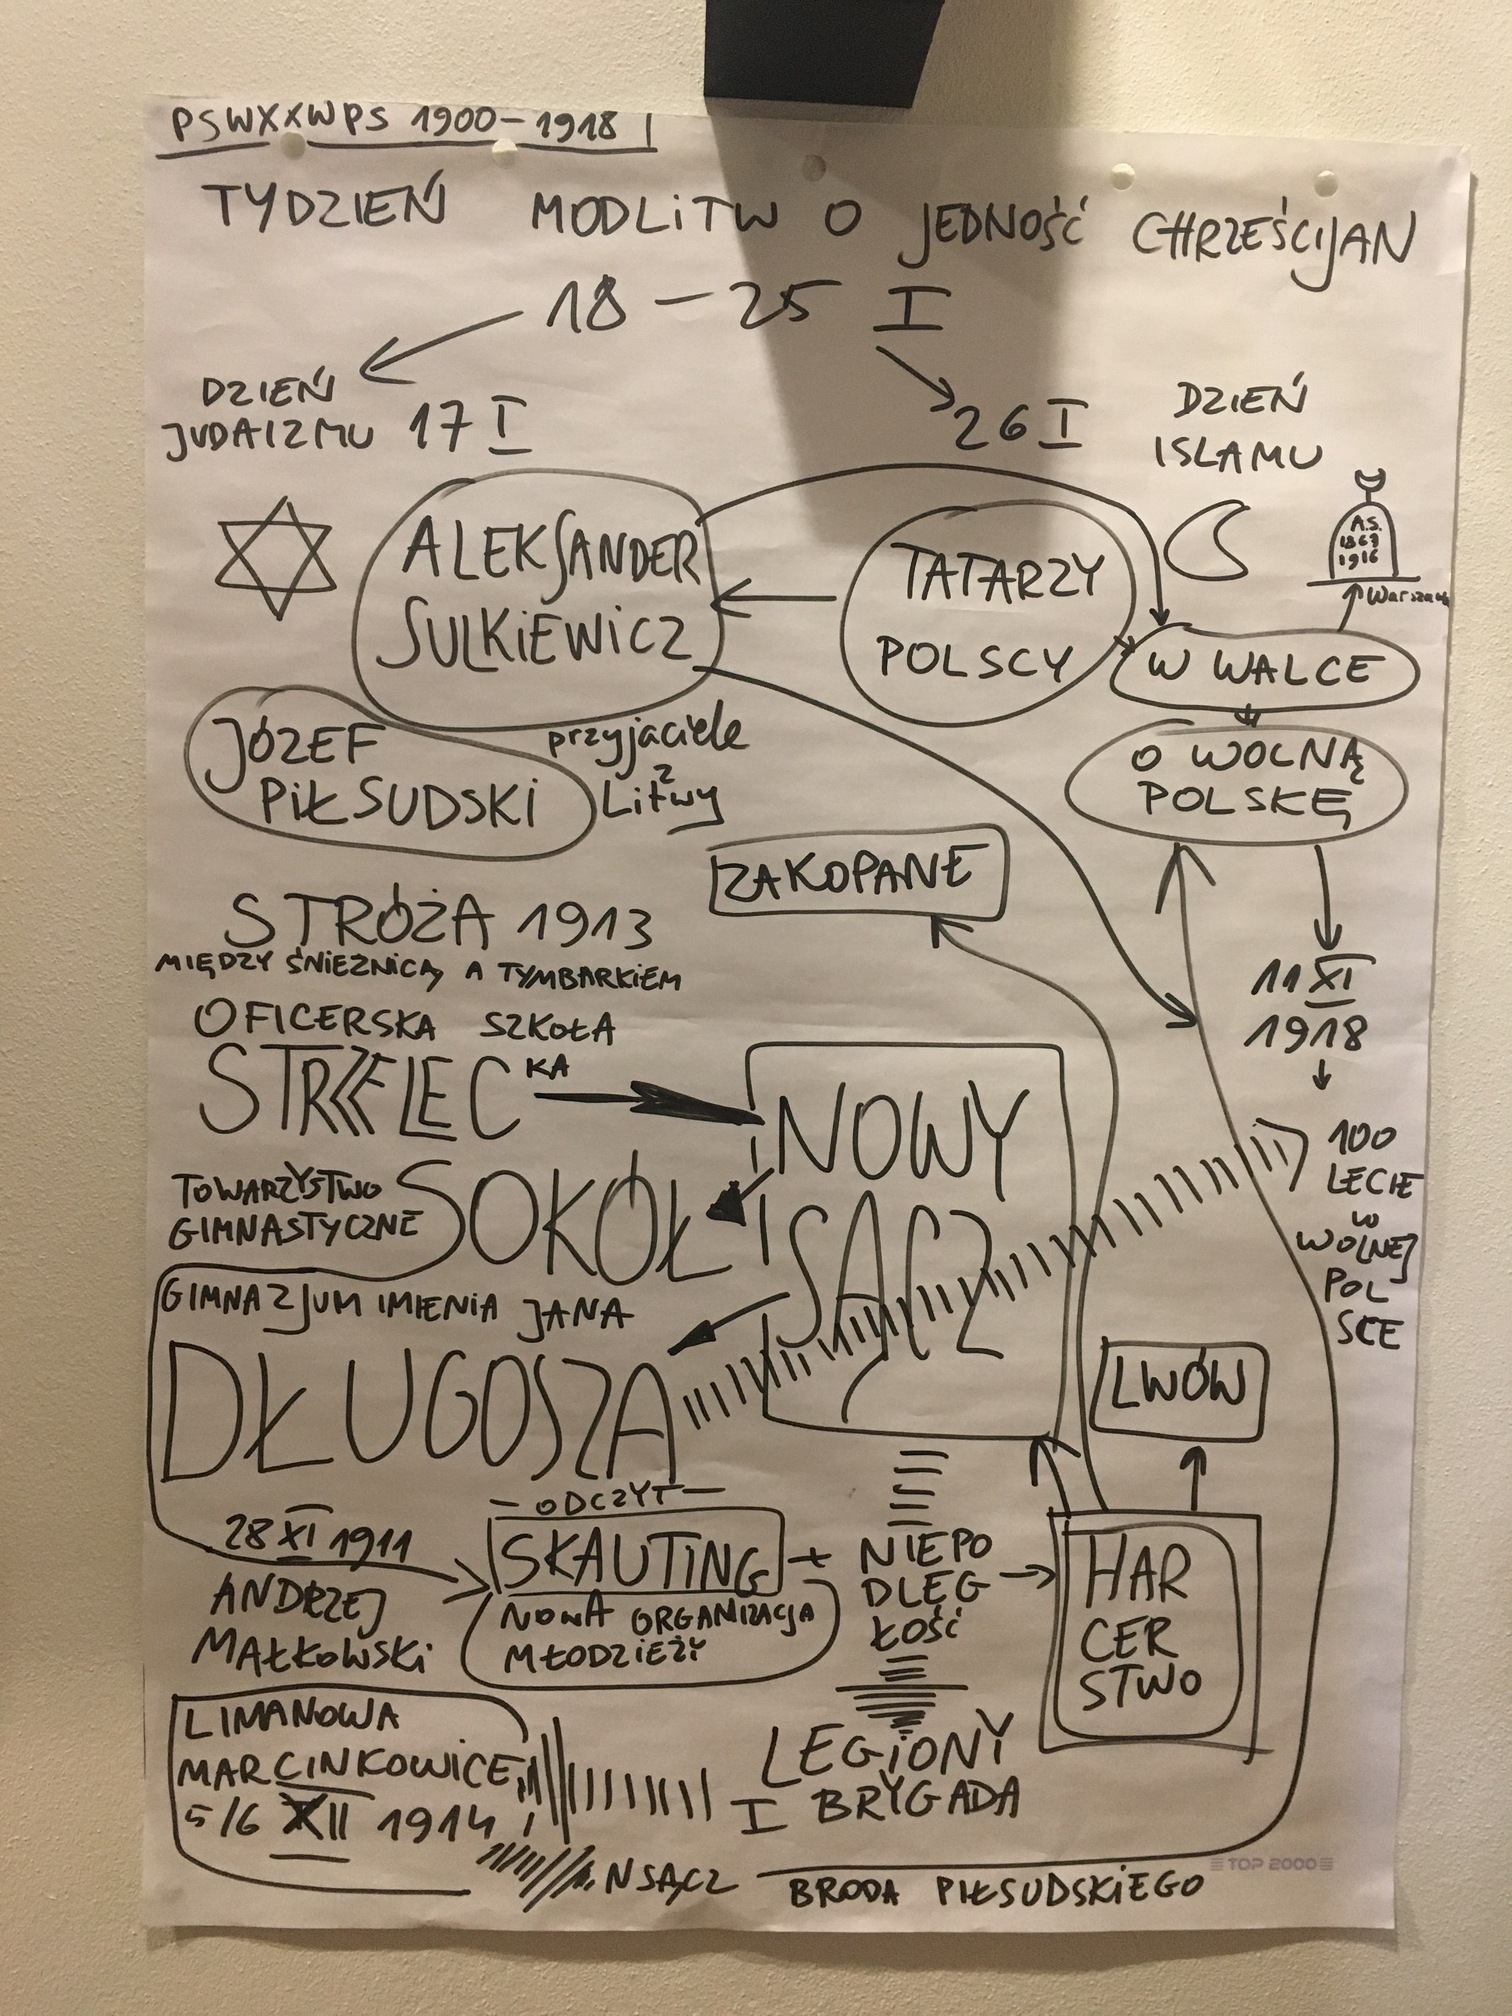 PSWXXWPS 1900-1918
TYDZIEŃ MODLITW O JEDNOŚĆ CHRZEŚCIJAN
18 - 25 I
DZIEŃ
JUDAIZMU 17 I
26 I
DZIEŃ
ISLAMU
ALEKSANDER
SULKIEWICZ
TATARZY
POLSCY
A.S.
1867
1916
Warszawa
W WALCE
O WOLNĄ
POLSKĘ
JÓZEF
PIŁSUDSKI
przyjaciele
z
Litwy
ZAKOPANE
STRÓŻA 1913
MIĘDZY ŚNIEŻNICĄ A TYMBARKIEM
OFICERSKA SZKOŁA
STRZELECKA
11 XI
1918
100
LECIE
W
WOLNEJ
POL
SCE
NOWY
SĄCZ
TOWARZYSTWO
GIMNASTYCZNE
SOKÓŁ
GIMNAZJUM IMIENIA JANA
DŁUGOSZA
LWÓW
28 XI 1911
ANDRZEJ
MAŁKOWSKI
- ODCZYT -
SKAUTING
NOWA ORGANIZACJA
MŁODZIEŻY
+ NIEPO
DLEG
ŁOŚĆ
HAR
CER
STWO
LIMANOWA
MARCINKOWICE
5/6 XII 1914
LEGIONY
I BRYGADA
N SĄCZ
BRODA PIŁSUDSKIEGO
TOP 2000